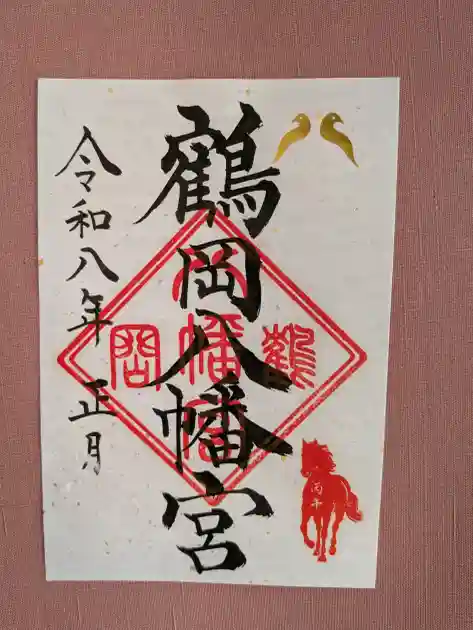 鶴岡八幡宮
令和八年 正月
鶴
岡
八
幡
宮
丙午